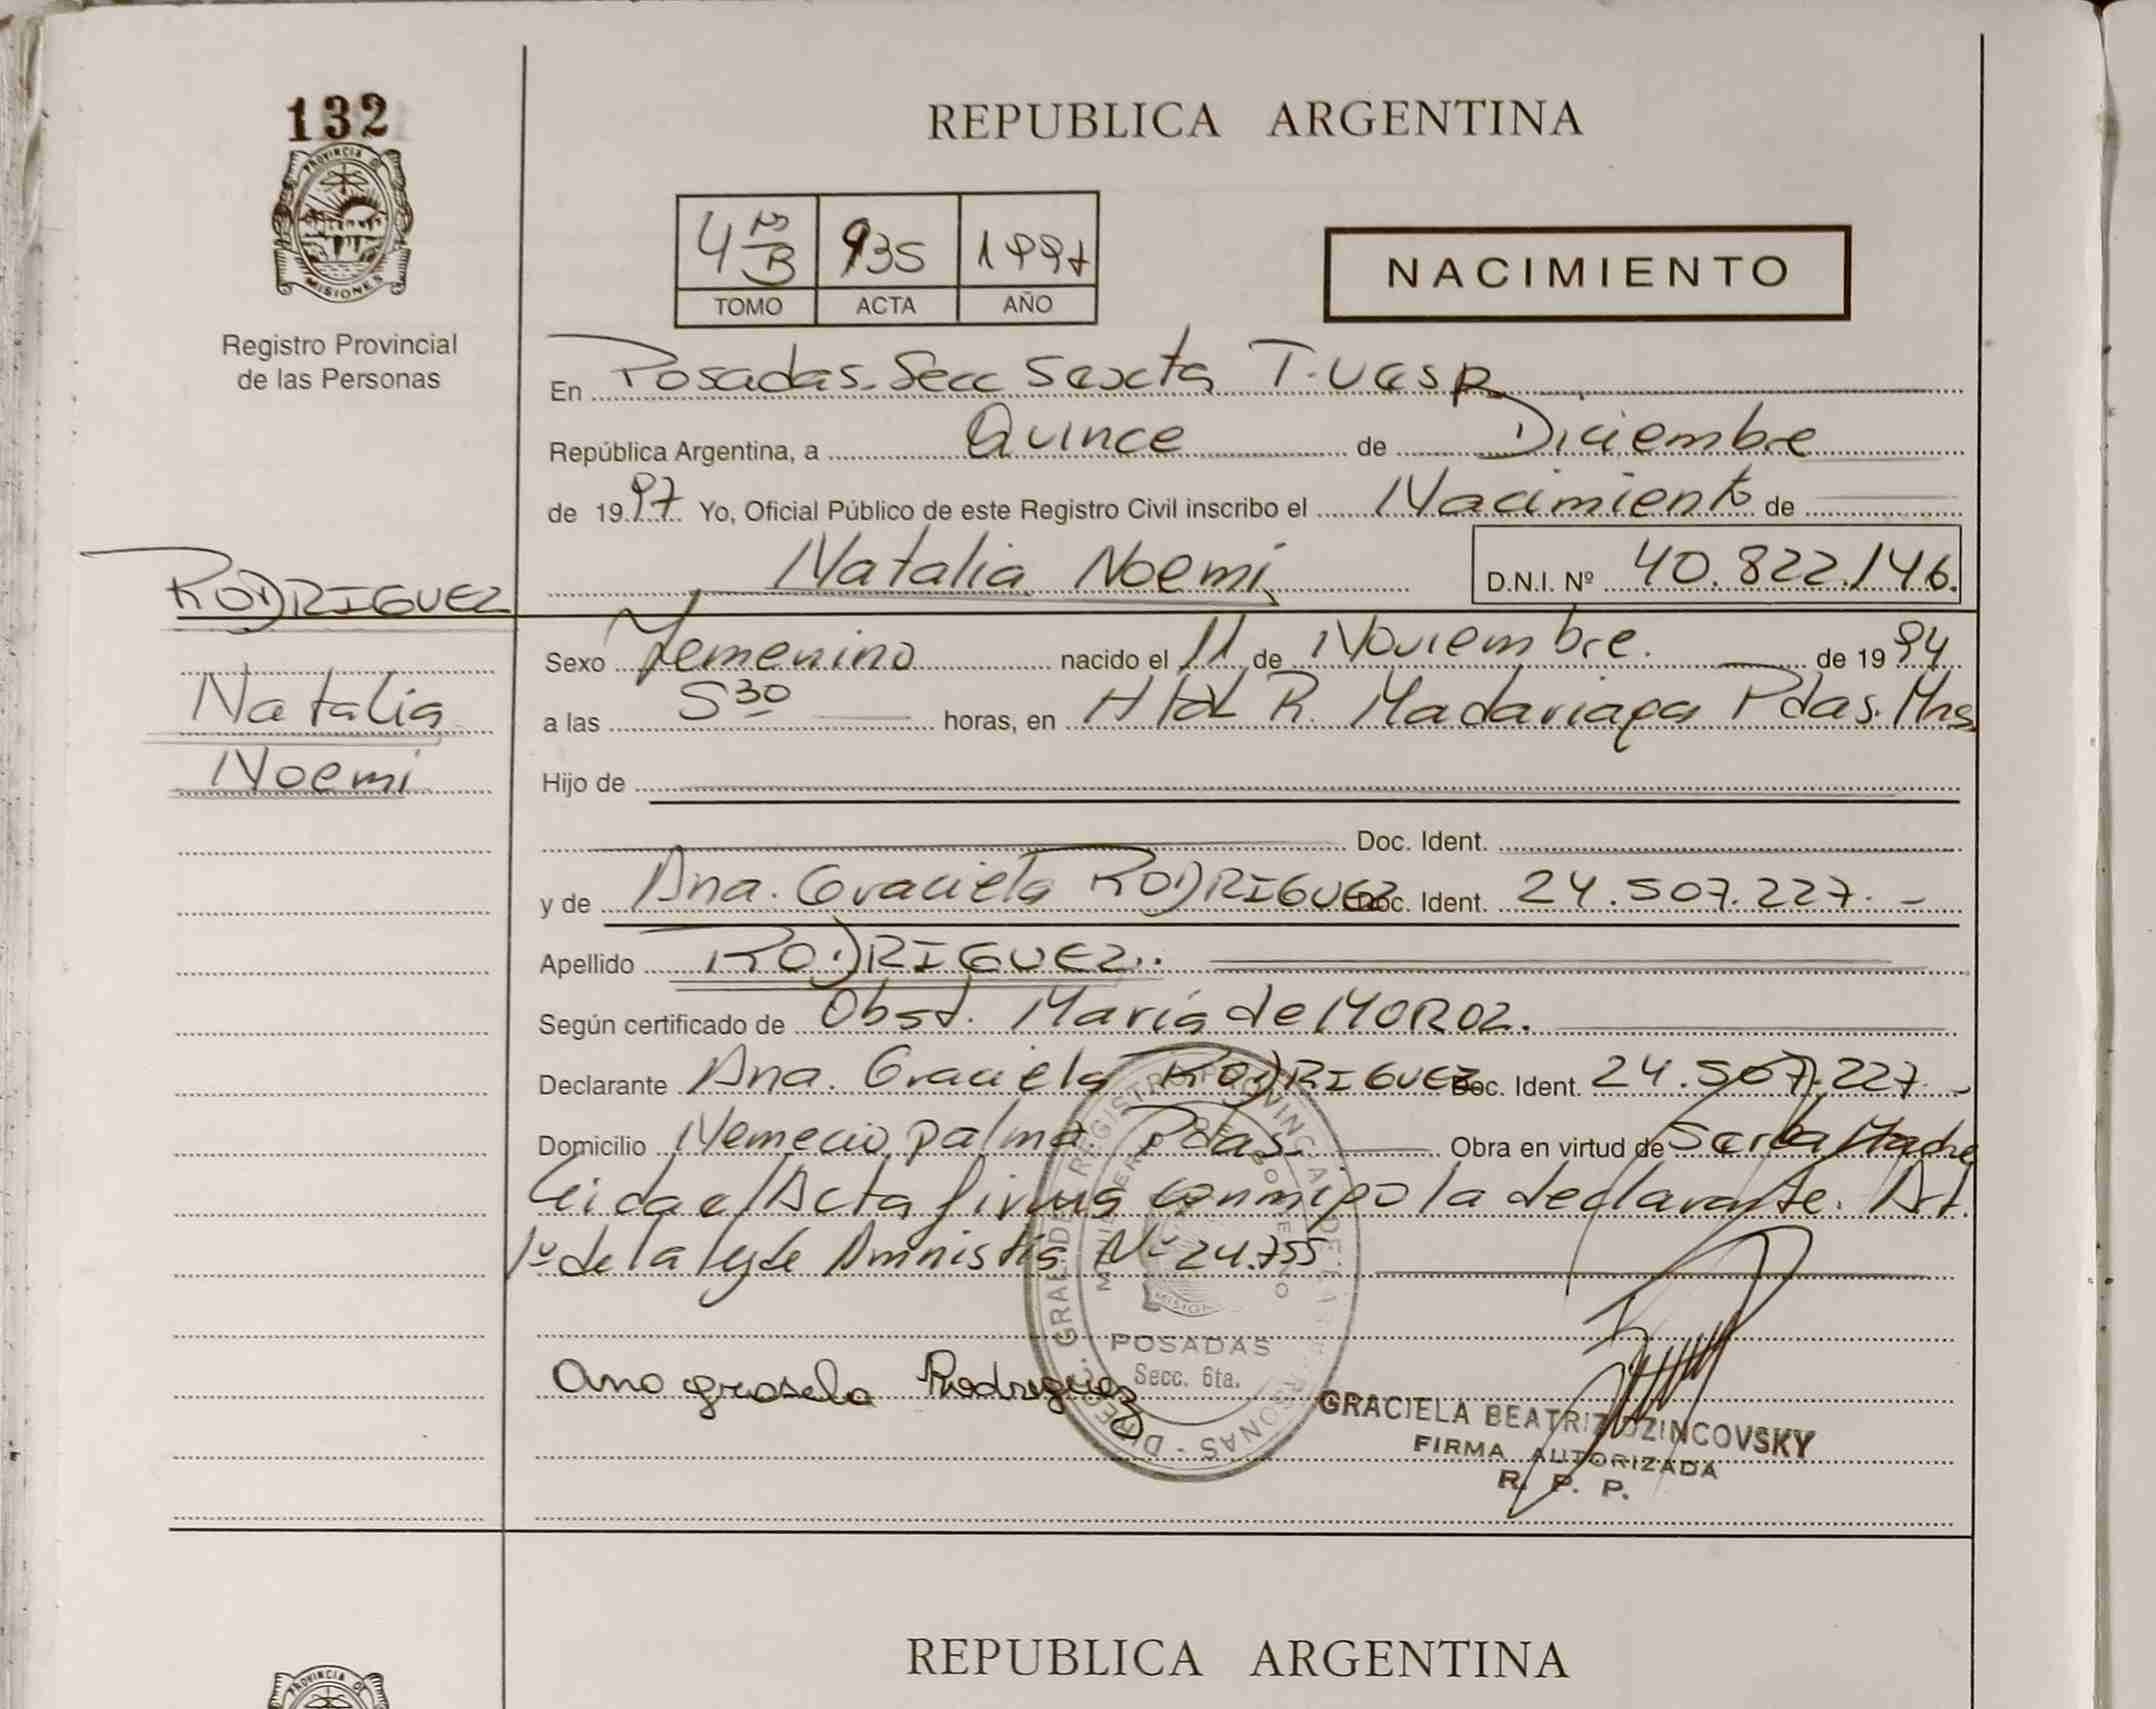 132
PROVINCIA D
MISIONES
Registro Provincial
de las Personas
REPUBLICA ARGENTINA
4 B 935 1997
TOMO ACTA AÑO
NACIMIENTO
En Posadas. Secc Sexta T.
República Argentina, a Quince de Diciembre
de 1997 Yo, Oficial Público de este Registro Civil inscribo el Nacimiento de
Natalia Noemi D.N.I. Nº 40.822.146.
RODRIGUEZ
Natalia
Noemi
Sexo Femenino nacido el 11 de Noviembre. de 1994
a las 5 30 horas, en R. Madariaga Pdas. Mns
Hijo de
Doc. Ident.
y de Ana. Graciela RODRIGUEZ Doc. Ident. 24.507.227. -
Apellido RODRIGUEZ..
Según certificado de Obst. Maria de MOROZ.
Declarante Ana. Graciela RODRIGUEZ Doc. Ident. 24.507.227. -
Domicilio Nemecio palma. Pdas. Obra en virtud de Madre
Leida el Acta firma conmigo la declarante. Art.
1º de la ley de Amnistia Nº 24.755
POSADAS
Secc. 6ta.
Ana grasela Rodriguez
GRACIELA BEATRIZ DZINCOVSKY
FIRMA AUTORIZADA
R. P. P.
REPUBLICA ARGENTINA
PROVINCIA D